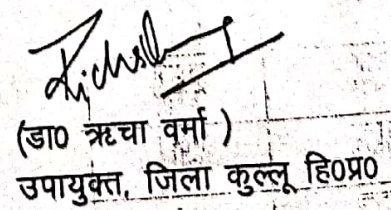 (डा० ऋचा वर्मा )
उपायुक्त, जिला कुल्लू हि०प्र०